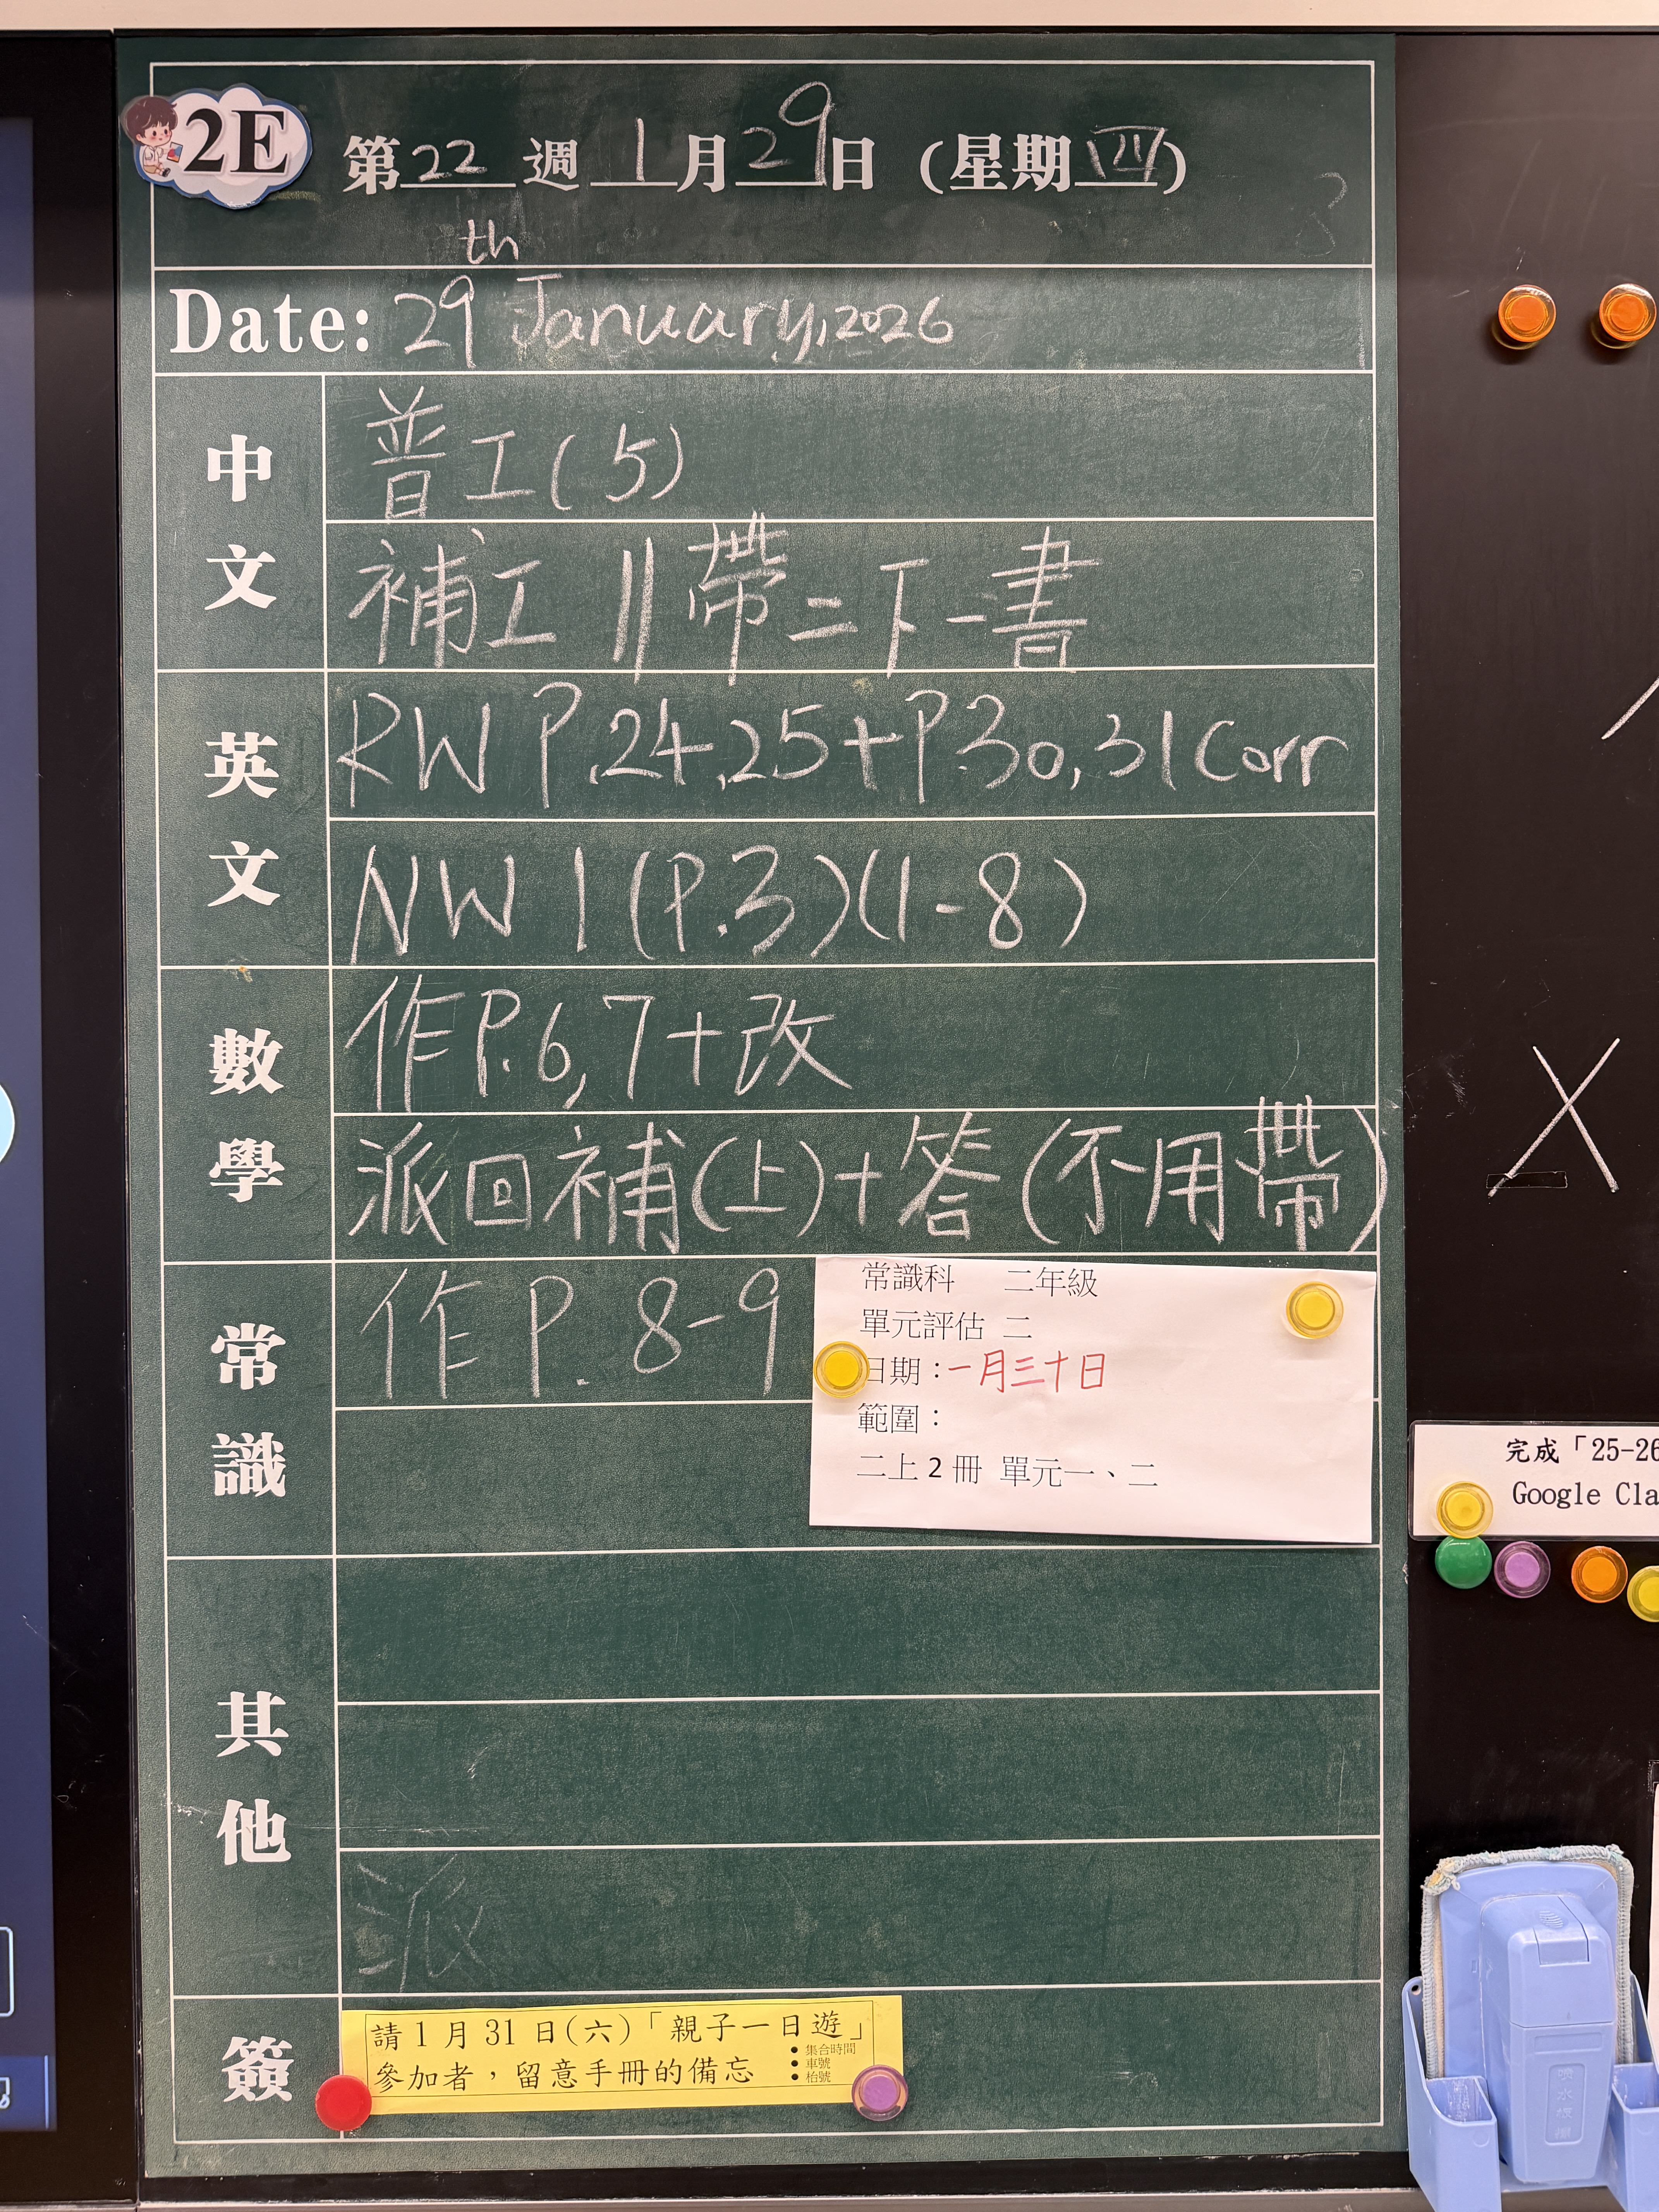 2E
第22週 1月29日 (星期四)
Date: 29th January, 2026
中文
普工(5)
補工 || 帶二下一書
英文
RW P.24,25+P.30,31 Corr
NW 1 (P.3)(1-8)
數學
作P.6,7+改
派回補(上)+答(不用帶)
常識
作 P. 8-9
常識科 二年級
單元評估 二
日期：一月三十日
範圍：
二上 2 冊 單元一、二
完成「25-26
Google Cla
其他
派
簽
請1月31日(六)「親子一日遊」
參加者，留意手冊的備忘
• 集合時間
• 車號
• 枱號